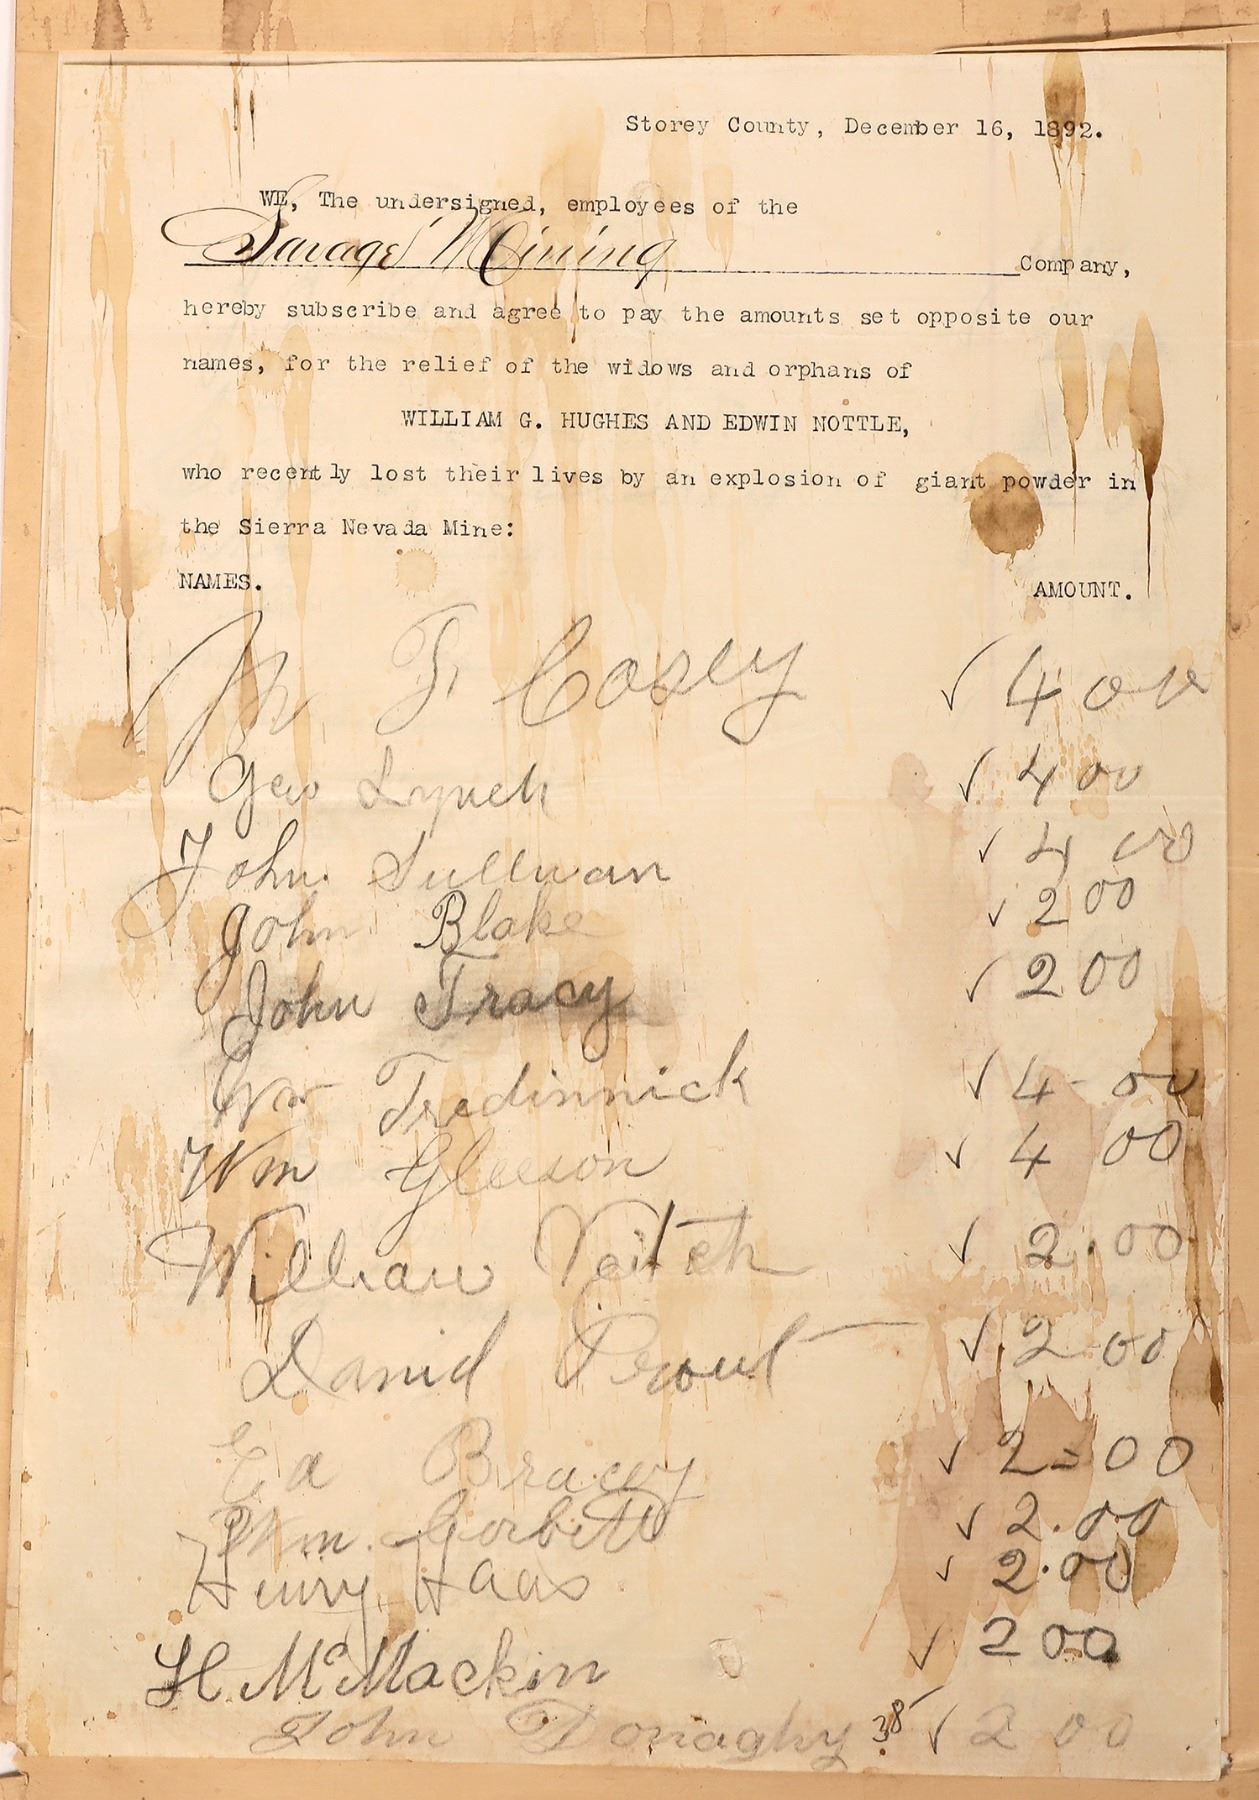 Storey County, December 16, 1892.
WE, The undersigned, employees of the
Savage Mining Company,
hereby subscribe and agree to pay the amounts set opposite our
names, for the relief of the widows and orphans of
WILLIAM G. HUGHES AND EDWIN NOTTLE,
who recently lost their lives by an explosion of giant powder in
the Sierra Nevada Mine:
NAMES. AMOUNT.
M F Cosey ✓ 4 00
Geo Lynch ✓ 4 00
John Sullivan ✓ 4 00
John Blake ✓ 2 00
John Tracy ✓ 2 00
Wm Tredinnick ✓ 4-00
Wm Gleeson ✓ 4 00
William Veitch ✓ 2.00
David Prout ✓ 2 00
Ed Bracey ✓ 2=00
Wm. Gorbett ✓ 2.00
Henry Haas ✓ 2.00
H McMackin ✓ 2 00
John Donaghy 38 ✓ 2 00